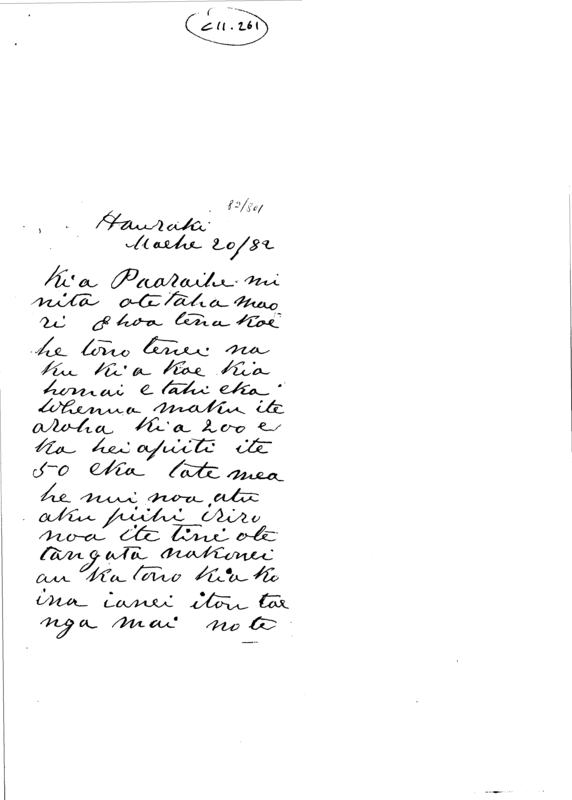 C11.261
82/801
Hauraki
Maehe 20/82
Kia Paaraihe mi
nita ote taha mao
ri E hoa tena koe
he tono tenei na
ku ki a koe kia
homai e tahi eka
whenua maku ite
aroha ki a 200 e
ka hei apiiti ite
50 eka tate mea
he nui noa atu
aku piihi i riro
noa ite tini ote
tangata nakonei
au ka tono kia ko
ina ianei itou tae
nga mai no te